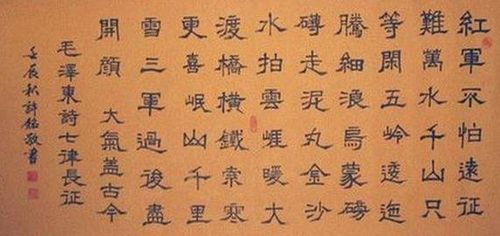 紅軍不怕遠征
難萬水千山只
等閑五岭逶迤
騰細浪烏蒙磅
礴走泥丸金沙
水拍雲崖暖大
渡橋橫鐵索寒
更喜岷山千里
雪三軍過後盡
開顏 大氣盖古今
毛澤東詩七律長征
壬辰秋許銘敬書